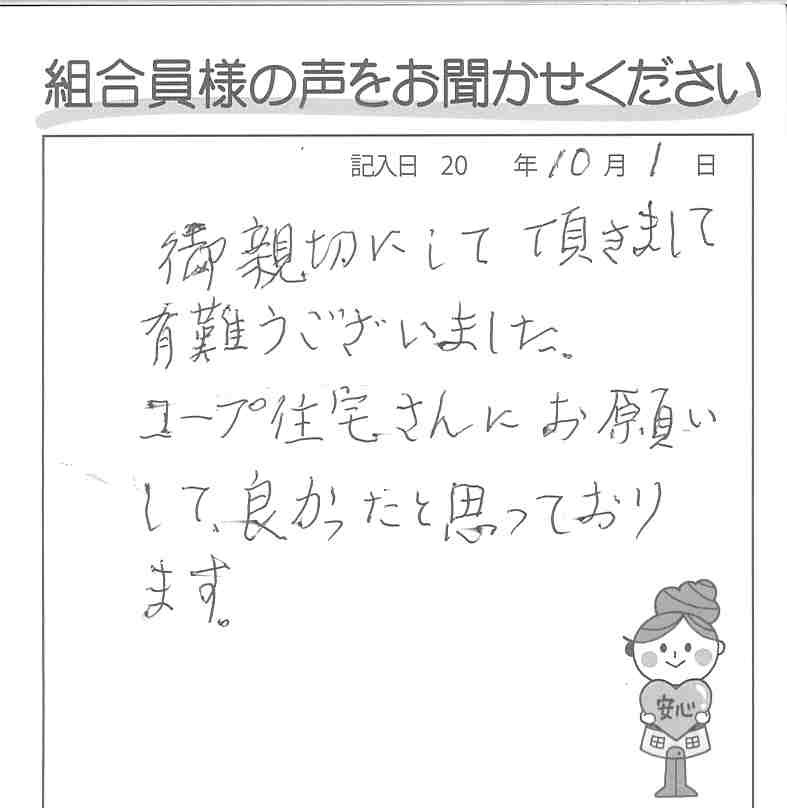 組合員様の声をお聞かせください
記入日 20 年 10 月 1 日
御親切にして頂きまして
有難うございました。
コープ住宅さんにお願い
して、良かったと思っており
ます。
安心